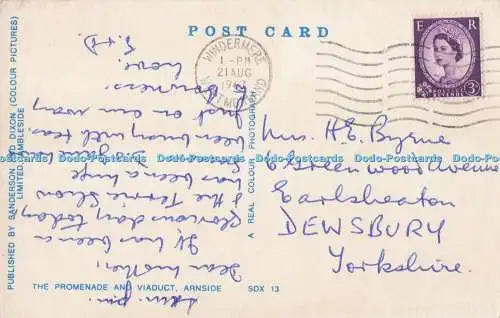 POST CARD
E R
POSTAGE REVENUE
3D
WINDERMERE
1-PM
21 AUG
WESTMORLAND
Mrs. H.E. Byrne
6 Greenwood Avenue
Earlsheaton
DEWSBURY
Yorkshire.
Dear Mother,
It has been a
glorious day today
& the Terrier Show
has been a huge
been busy with teas.
Just on our way
to Bowness.
Love.
E. & D.
PUBLISHED BY SANDERSON AND DIXON (COLOUR PICTURES)
LIMITED AMBLESIDE
A REAL COLOUR PHOTOGRAPH
THE PROMENADE AND VIADUCT, ARNSIDE SDX 13
Dodo-Postcards Dodo-Postcards Dodo-Postcards Dodo-Postcards Dodo-Postcards Dodo-Postcards